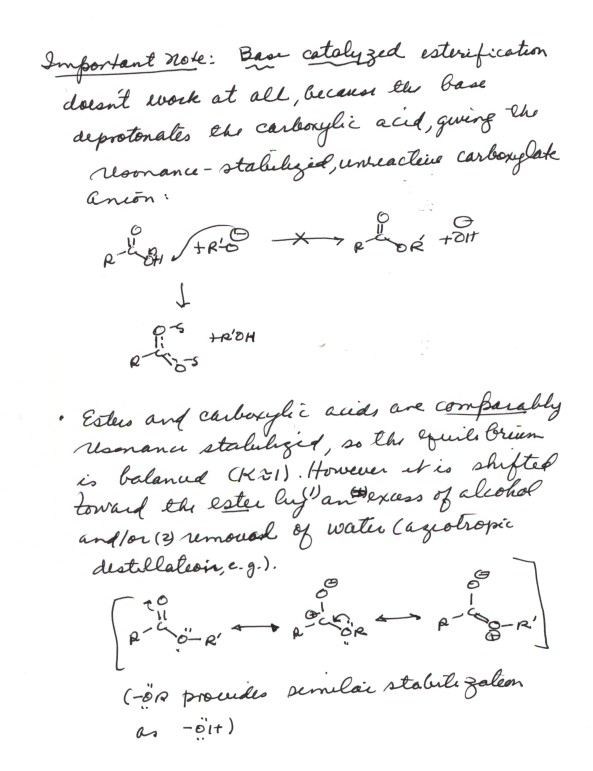 Important note: Base catalyzed esterification
doesn't work at all, because the base
deprotonates the carboxylic acid, giving the
resonance-stabilized, unreactive carboxylate
anion:
O O ⊖
R-C OH +R'O⊖ ⟶ R-C OR' +OH
↓
O δ- +R'OH
R-C O δ-
• Esters and carboxylic acids are comparably
resonance stabilized, so the equilibrium
is balanced (K≈1). However it is shifted
toward the ester by (1) an excess of alcohol
and/or (2) removal of water (azeotropic
distillation, e.g.).
O O⊖ O⊖
[R-C Ö-R' ⟷ R-C⊕ ÖR ⟷ R-C O⊕-R']
(-ÖR provides similar stabilization
as -ÖH)